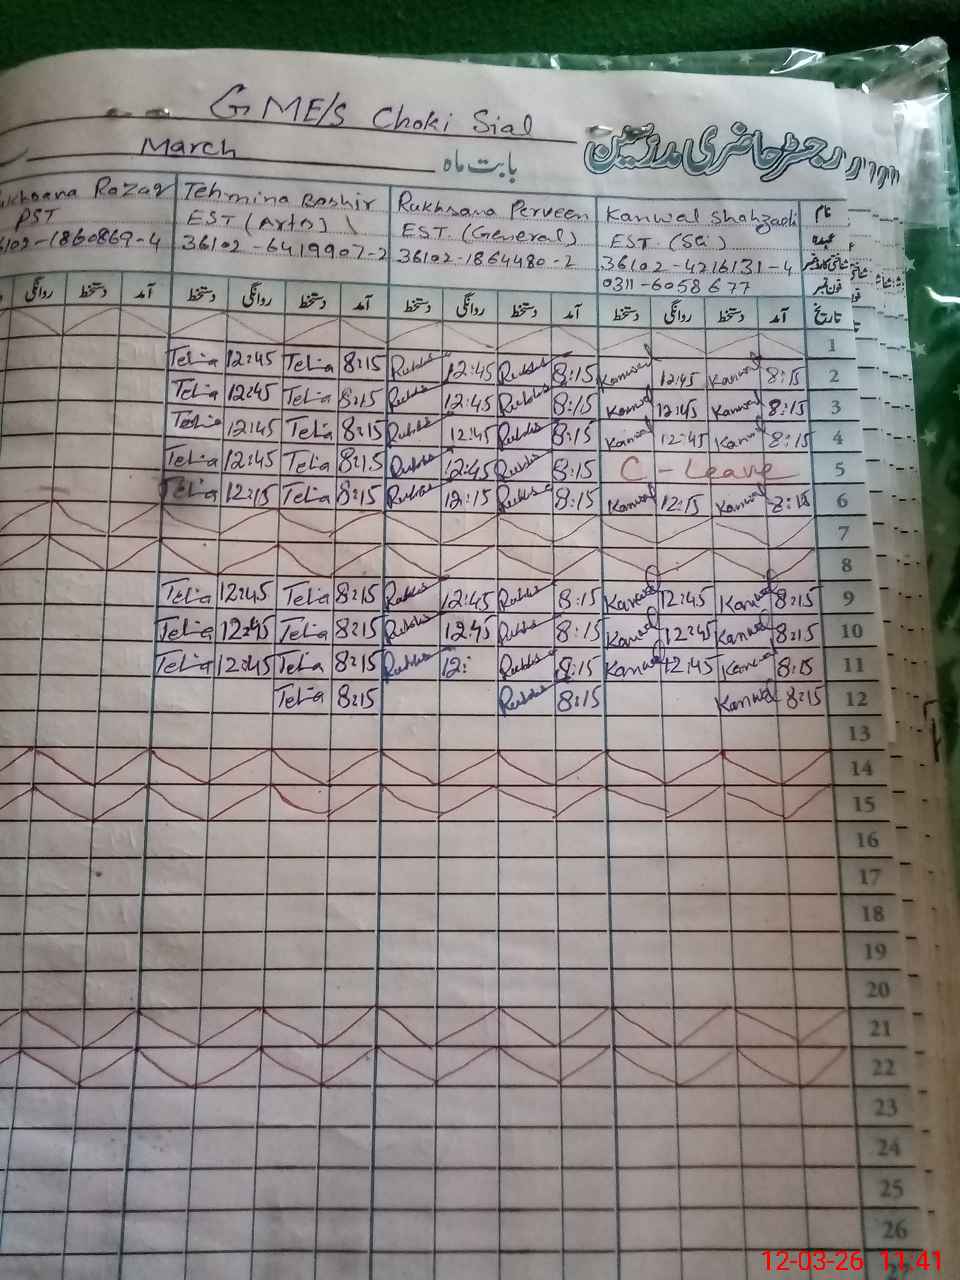 G ME/S Choki Sial
رجسٹر حاضری مدرسین
March بابت ماہ
Razaq Tehmina Bashir Rukhsana Perveen Kanwal Shahzadi نام
PST EST (Arts) EST. (General) EST. (Sci) عہدہ
36102-1860869-4 36102-6419907-2 36102-1864480-2 36102-4216131-4 شناختی کارڈ نمبر
0311-6058677 فون نمبر
روانگی دستخط آمد دستخط روانگی دستخط آمد دستخط روانگی دستخط آمد دستخط روانگی دستخط آمد تاریخ
1
12:45 8:15 12:45 8:15 Kanwal 12:45 Kanwal 8:15 2
12:45 8:15 12:45 8:15 Kanwal 12:45 Kanwal 8:15 3
12:45 8:15 12:45 8:15 Kanwal 12:45 Kanwal 8:15 4
12:45 8:15 12:45 8:15 C - Leave 5
12:15 8:15 12:15 8:15 Kanwal 12:15 Kanwal 8:15 6
7
8
12:45 8:15 12:45 8:15 Kanwal 12:45 Kanwal 8:15 9
12:45 8:15 12:45 8:15 Kanwal 12:45 Kanwal 8:15 10
12:45 8:15 12: 8:15 Kanwal 12:45 Kanwal 8:15 11
8:15 8:15 Kanwal 8:15 12
13
14
15
16
17
18
19
20
21
22
23
24
25
26
12-03-26 11:41